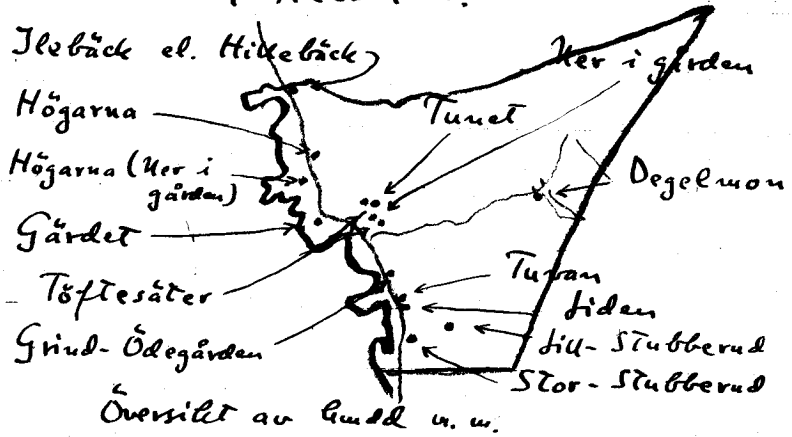 Ilebäck el. Hillebäck
Ner i gården
Högarna
Tunet
Högarna (Ner i
gården)
Degelmon
Gärdet
Tuvan
Töftesäter
Liden
Grind-Ödegården
Lill-Stubberud
Stor-Stubberud
Översikt av m. m.